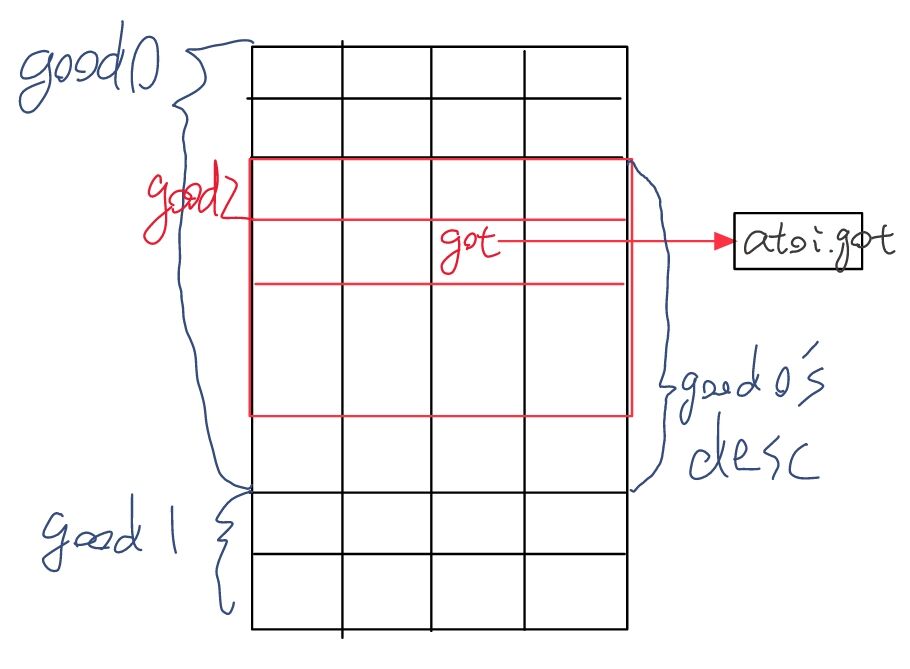 good0
good2
got
atoi.got
good0's
desc
good1